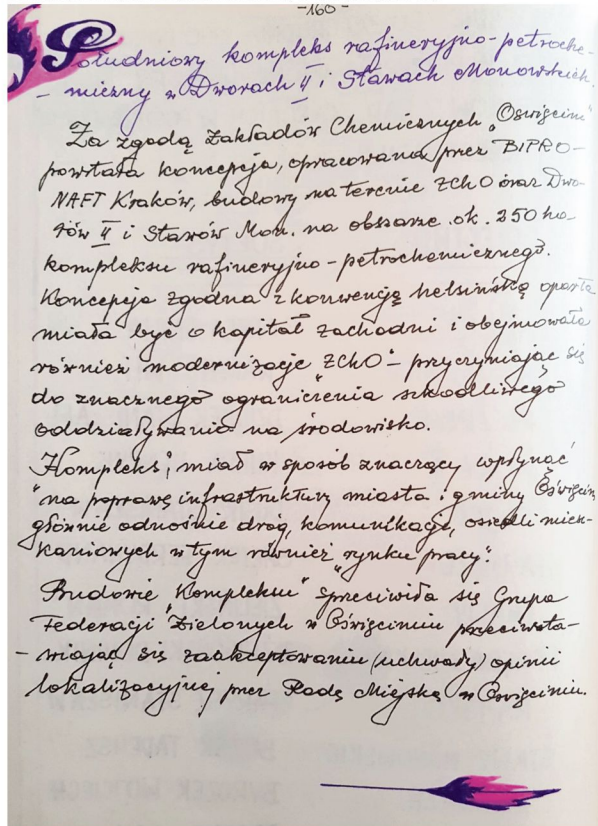 -160-
Południowy kompleks rafineryjno-petroche-
-miczny w Dworach II i Stawach Monowskich.
Za zgodą Zakładów Chemicznych „Oświęcim"
powstała koncepcja, opracowana przez BIPRO-
NAFT Kraków, budowy na terenie ZChO oraz Dwo-
rów II i Stawów Mon. na obszarze ok. 250 ha
kompleksu rafineryjno-petrochemicznego.
Koncepcja zgodna z konwencją helsińską oparta
miała być o kapitał zachodni i obejmowała
również modernizację „ZChO" – przyczyniając się
do znacznego ograniczenia szkodliwego
oddziaływania na środowisko.
„Kompleks", miał w sposób znaczący wpłynąć
na poprawę infrastruktury miasta i gminy Oświęcim,
głównie odnośnie dróg, komunikacji, osiedli miesz-
kaniowych w tym również „rynku pracy".
Budowie „Kompleksu" sprzeciwiła się Grupa
Federacji „Zielonych" w Oświęcimiu przeciwsta-
-wiając się zaakceptowaniu (uchwały) opinii
lokalizacyjnej przez Radę Miejską w Oświęcimiu.